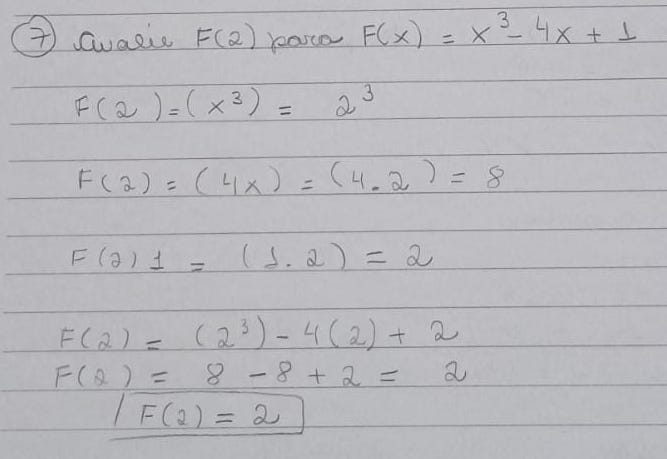 7 Avalie F(2) para F(x) = x³ - 4x + 1
F(2) = (x³) = 2³
F(2) = (4x) = (4.2) = 8
F(2) 1 = (1.2) = 2
F(2) = (2³) - 4(2) + 2
F(2) = 8 - 8 + 2 = 2
F(2) = 2